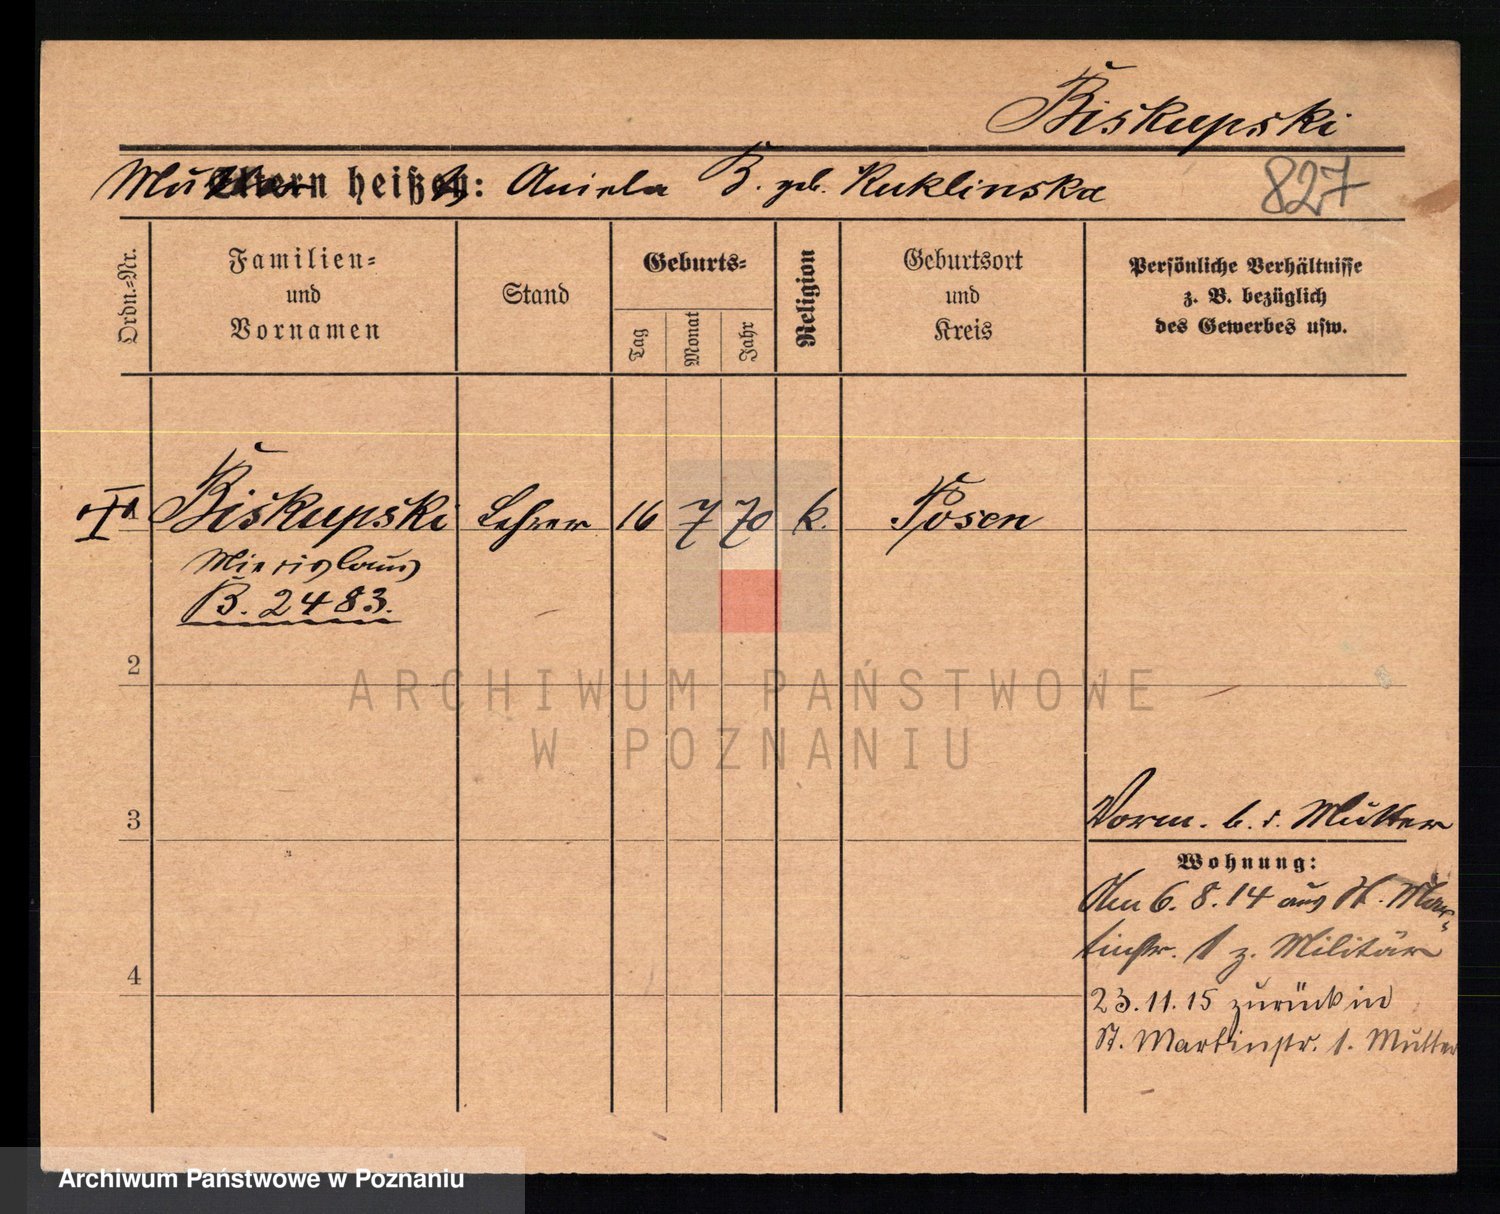 Biskupski
Mutter heißt: Aniela B. geb. Kuklinska
827
Ordn.-Nr.
Familien-
und
Vornamen
Stand
Geburts-
Tag
Monat
Jahr
Religion
Geburtsort
und
Kreis
Persönliche Verhältnisse
z. B. bezüglich
des Gewerbes usw.
Biskupski Lehrer 16 7 70 k. Posen
Mieislaus
B. 2483.
2
ARCHIWUM PAŃSTWOWE
W POZNANIU
3
Vorm. b. d. Mutter
Wohnung:
Am 6. 8. 14 aus St. Mar-
tinstr. 1 z. Militär
4
23. 11. 15 zurück in
St. Martinstr. 1. Mutter
Archiwum Państwowe w Poznaniu